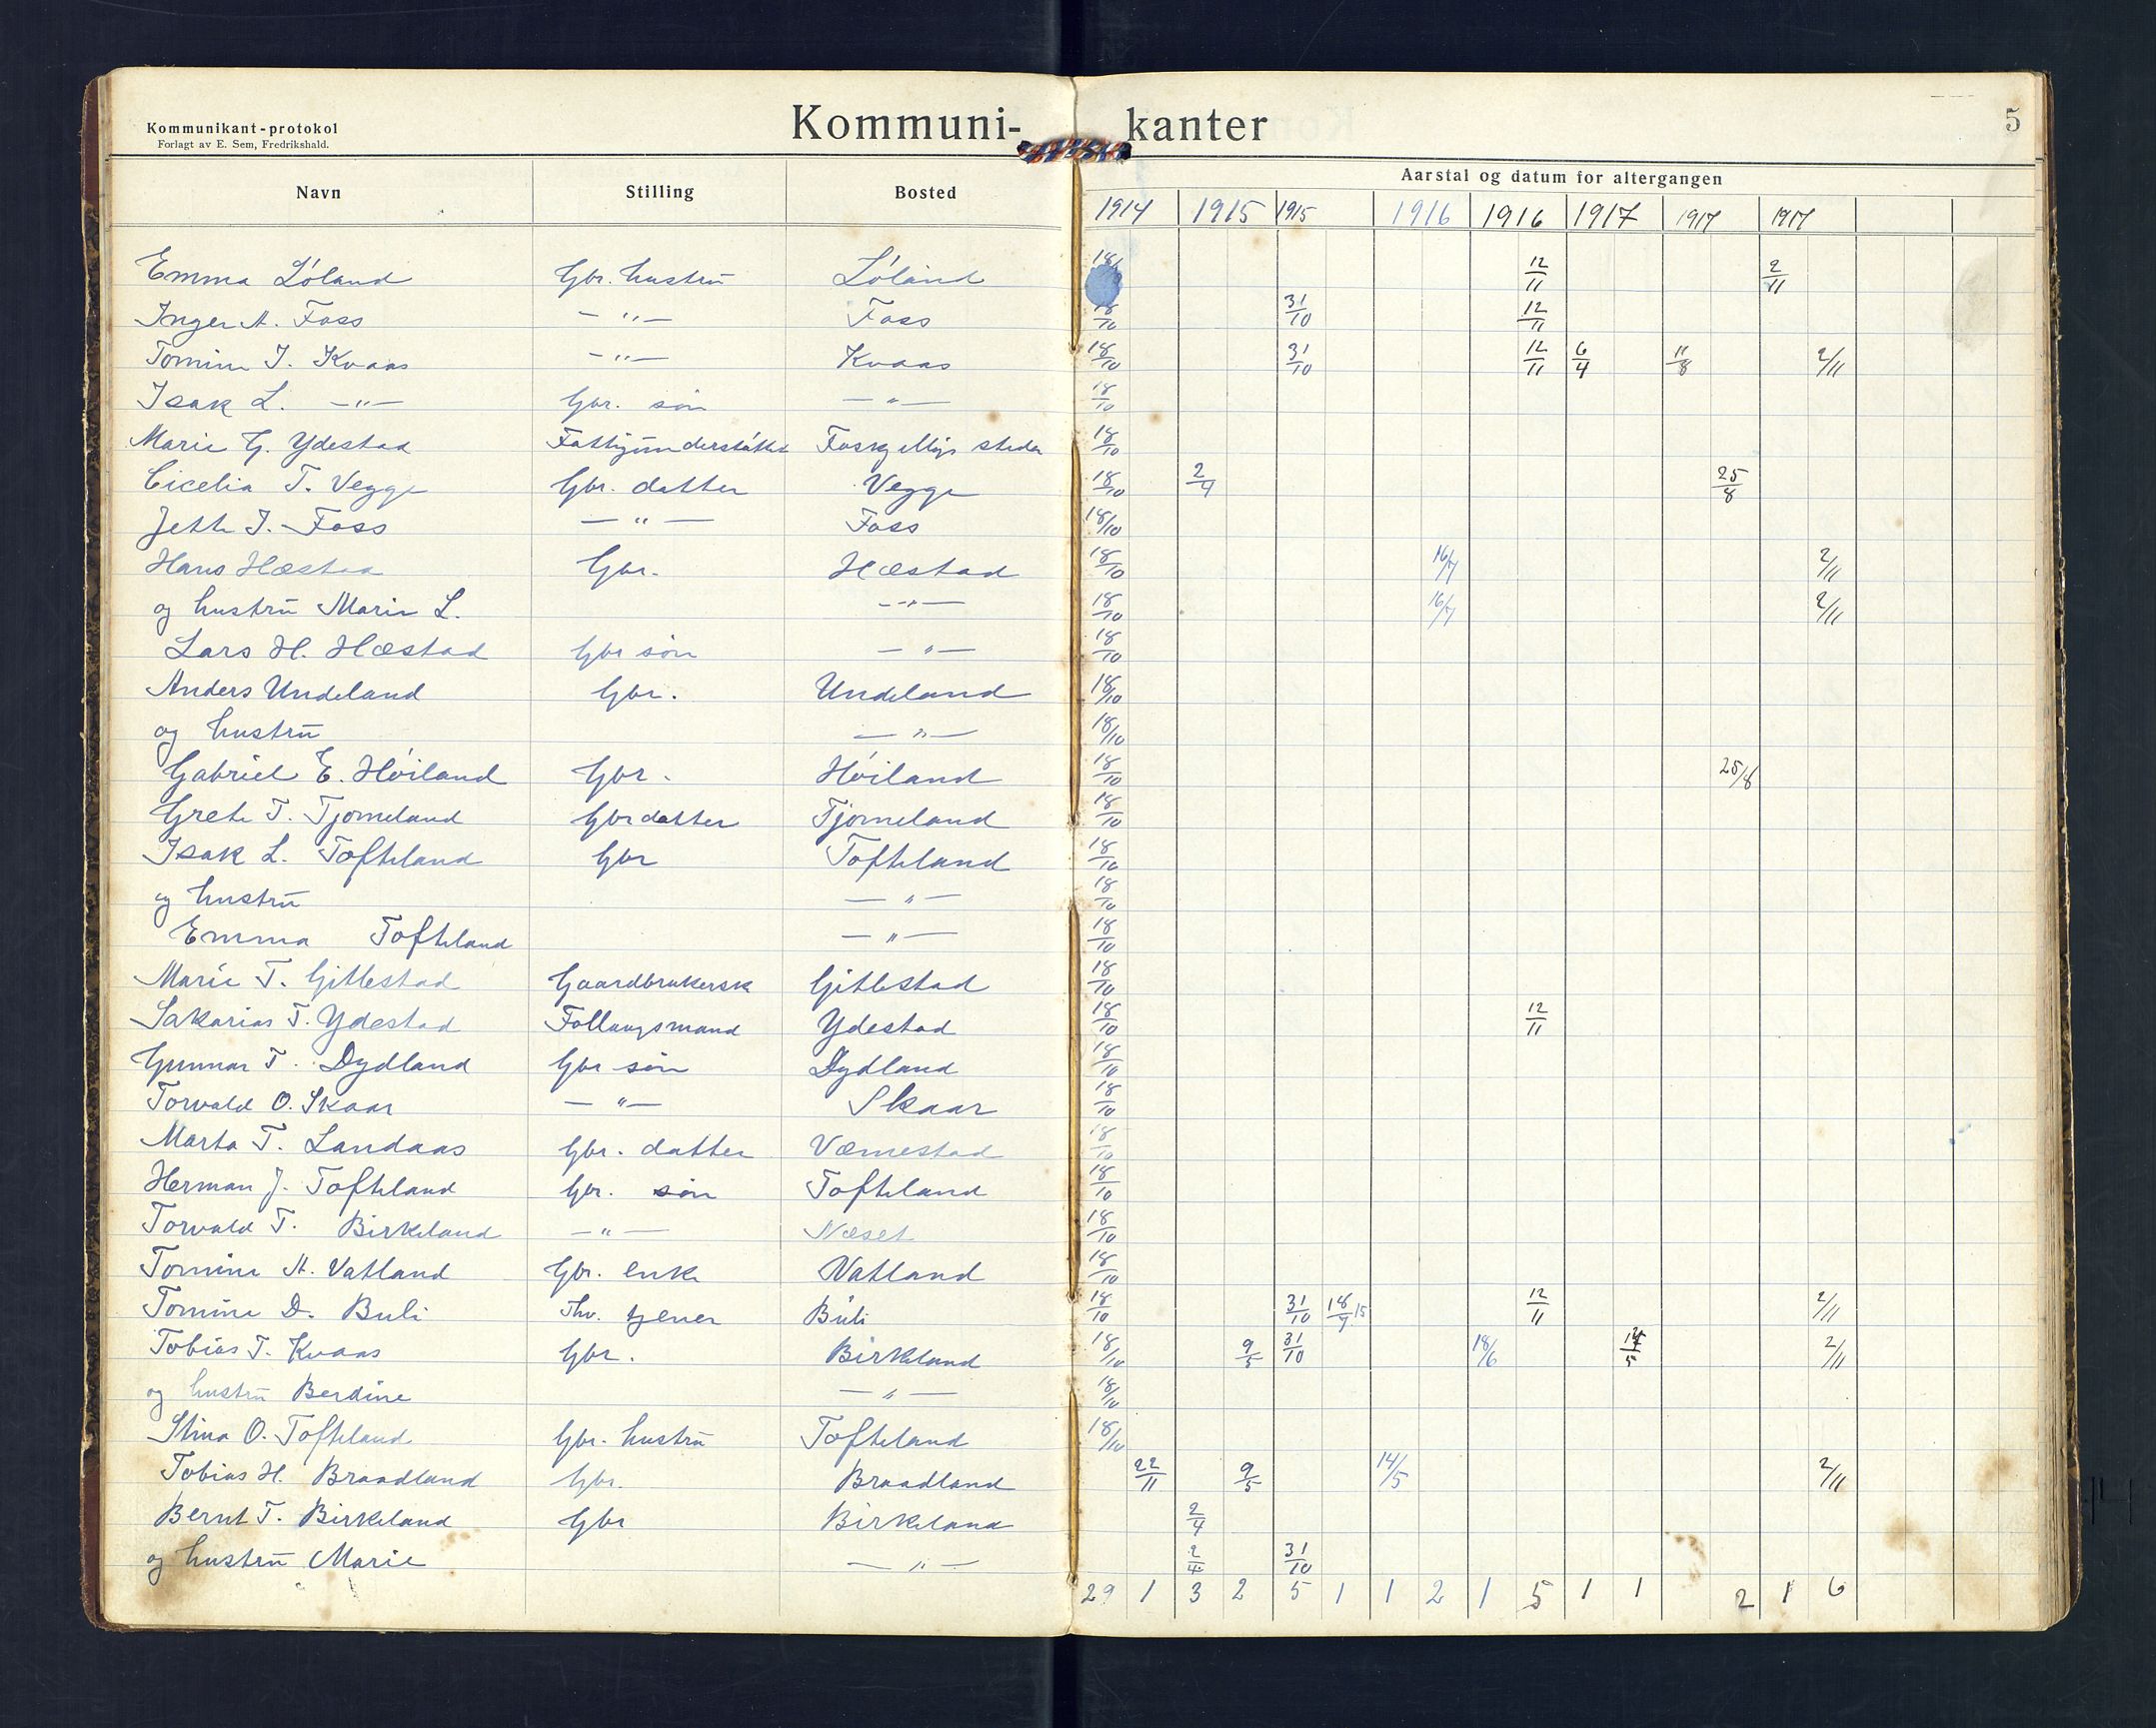 Kommunikant-protokol
Forlagt av E. Sem, Fredrikshald.
Kommuni- kanter
5
Navn Stilling Bosted Aarstal og datum for altergangen
1914 1915 1915 1916 1916 1917 1917 1917
Emma Løland Gbr. hustru Løland 18/ 12/11 2/11
Inger A. Foss —"— Foss 18/10 31/10 12/11
Tomine J. Kvaas —"— Kvaas 18/10 31/10 12/11 6/4 11/8 2/11
Isak L. —"— Gbr. søn —"— 18/10
Marie G. Ydestad Fattigunderstøttet Forskjellige steder 18/10
Cicelia T. Vegge Gbr. datter Vegge 18/10 2/4 25/8
Jette J. Foss —"— Foss 18/10
Hans Hæstad Gbr. Hæstad 18/10 16/7 2/11
og hustru Marie L. —"— 18/10 16/7 2/11
Lars H. Hæstad Gbr søn —"— 18/10
Anders Undeland Gbr. Undeland 18/10
og hustru —"— 18/10
Gabriel E. Høiland Gbr. Høiland 18/10 25/8
Grete T. Tjomeland Gbr datter Tjomeland 18/10
Isak L. Tofteland Gbr Tofteland 18/10
og hustru —"— 18/10
Emma Tofteland —"— 18/10
Marie T. Gitlestad Gaardbrukerske Gitlestad 18/10
Sakarias T. Ydestad Follaugsmand Ydestad 18/10 12/11
Gunnar T. Dydland Gbr søn Dydland 18/10
Torvald O. Skaar —"— Skaar 18/10
Marta T. Landaas Gbr. datter Væmestad 18/10
Herman J. Tofteland Gbr. søn Tofteland 18/10
Torvald T. Birkeland —"— Næset 18/10
Tomine A. Vatland Gbr. enke Vatland 18/10
Tomine D. Buli Thv. tjener Buli 18/10 31/10 18/4 15 12/11 2/11
Tobias T. Kvaas Gbr. Birkeland 18/10 9/5 31/10 18/6 17/5 2/11
og hustru Berdine —"— 18/10
Stina O. Tofteland Gbr. hustru Tofteland 18/10
Tobias H. Braadland Gbr. Braadland 22/11 9/5 14/5 2/11
Bernt T. Birkeland Gbr Birkeland 2/4
og hustru Marie —"— 2/4 31/10
29 1 3 2 5 1 1 2 1 5 1 1 2 1 6